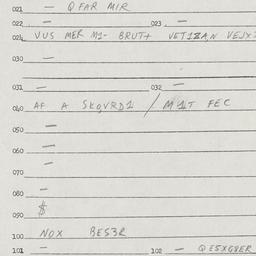 021 — Q FAR MIR
022 — 023 —
024 VUS MER M1- BRUT+
030 —
031 — 032 —
040 AF A SKQVRD1 / M1LT FEC
050 —
060 —
070 —
080 —
090 $
100 NOX BES3R
101 — 102 — QESXG8ER